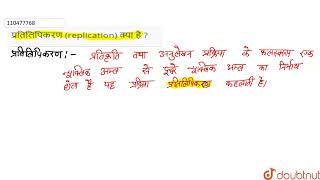 110477768
प्रतिलिपिकरण (replication) क्या है ?
प्रतिलिपिकरण :- प्रतिकृति तथा अनुलेखन प्रक्रिया के फलस्वरूप एक
न्यूक्लिक अम्ल से दूसरे न्यूक्लिक अम्ल का निर्माण
होता है यह प्रक्रिया प्रतिलिपिकरण कहलाती है।
doubtnut